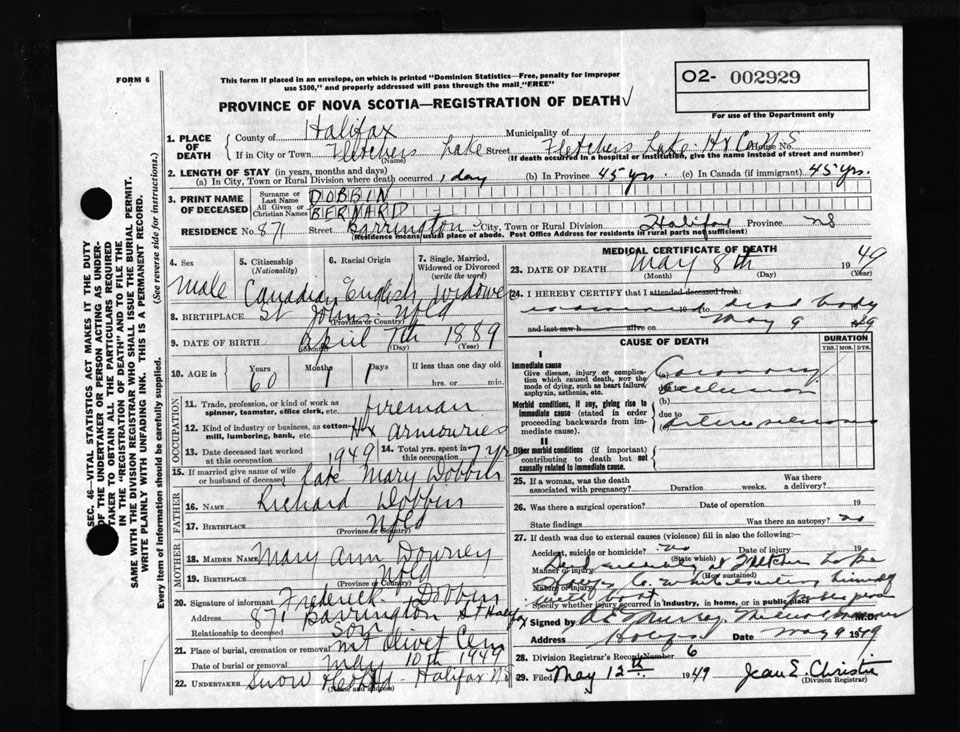 FORM 6
This form if placed in an envelope, on which is printed "Dominion Statistics—Free, penalty for improper
use $300," and properly addressed will pass through the mail "FREE"
O2- 002929
For use of the Department only
PROVINCE OF NOVA SCOTIA—REGISTRATION OF DEATH
1. PLACE OF DEATH
County of Halifax Municipality of
If in City or Town Fletchers Lake Street Fletchers Lake Hx Co. N.S House No.
(Name) (If death occurred in a hospital or institution, give the name instead of street and number)
2. LENGTH OF STAY (in years, months and days)
(a) In City, Town or Rural Division where death occurred 1 day (b) In Province 45 yrs. (c) In Canada (if immigrant) 45 yrs.
3. PRINT NAME OF DECEASED
Surname or Last Name DOBBIN
All Given or Christian Names BERNARD
RESIDENCE No. 871 Street Barrington City, Town or Rural Division Halifax Province NS
(Residence means usual place of abode. Post Office Address for residents in rural parts not sufficient)
4. Sex
Male
5. Citizenship (Nationality)
Canadian
6. Racial Origin
English
7. Single, Married, Widowed or Divorced (write the word)
Widower
8. BIRTHPLACE St Johns Nfld
(Province or Country)
9. DATE OF BIRTH April 7th 1889
(Month) (Day) (Year)
10. AGE in Years 60 Months 1 Days 1 If less than one day old
hrs. or min.
OCCUPATION
11. Trade, profession, or kind of work as spinner, teamster, office clerk, etc. fireman
12. Kind of industry or business, as cotton-mill, lumbering, bank, etc. Hx armouries
13. Date deceased last worked at this occupation 1949 14. Total yrs. spent in this occupation 7 yrs
15. If married give name of wife or husband of deceased late Mary Dobbin
FATHER
16. NAME Richard Dobbin
17. BIRTHPLACE Nfld
(Province or Country)
MOTHER
18. MAIDEN NAME Mary Ann Downey
19. BIRTHPLACE Nfld
(Province or Country)
20. Signature of informant Frederick Dobbin
Address 871 Barrington St Halifax
Relationship to deceased son
21. Place of burial, cremation or removal Mt Olivet Cem
Date of burial or removal May 10th 1949
22. UNDERTAKER Snow Halifax NS
(Name and address)
MEDICAL CERTIFICATE OF DEATH
23. DATE OF DEATH May 8th 1949
(Month) (Day) (Year)
24. I HEREBY CERTIFY that I attended deceased from:
examined dead body
19 to
and last saw h alive on May 9 1949
CAUSE OF DEATH
DURATION
YRS. MOS. DYS.
I
Immediate cause
Give disease, injury or complication which caused death, not the mode of dying, such as heart failure, asphyxia, asthenia, etc.
(a) Coronary
due to occlusion
Morbid conditions, if any, giving rise to immediate cause (stated in order proceeding backwards from immediate cause).
(b)
due to arterio sclerosis
(c)
II
Other morbid conditions (if important) contributing to death but not causally related to immediate cause.
25. If a woman, was the death associated with pregnancy? Duration weeks. Was there a delivery?
26. Was there a surgical operation? Date of operation 19
State findings Was there an autopsy? no
27. If death was due to external causes (violence) fill in also the following:
Accident, suicide or homicide? no Date of injury 19
(State which)
Manner of injury at Fletchers Lake
(How sustained)
Nature of injury Halifax Co. while himself
boat
Specify whether injury occurred in industry, in home, or in public place
Signed by Murray, M.D.
Address Halifax Date May 9 1949
28. Division Registrar's Record Number 6
29. Filed May 12th 1949 Jean E. Christie
(Division Registrar)
SEC. 46—VITAL STATISTICS ACT MAKES IT THE DUTY
OF THE UNDERTAKER OR PERSON ACTING AS UNDER-
TAKER TO OBTAIN ALL THE PARTICULARS REQUIRED
IN THE "REGISTRATION OF DEATH" AND TO FILE THE
SAME WITH THE DIVISION REGISTRAR WHO SHALL ISSUE THE BURIAL PERMIT.
WRITE PLAINLY WITH UNFADING INK. THIS IS A PERMANENT RECORD.
(See reverse side for instructions.)
Every item of information should be carefully supplied.